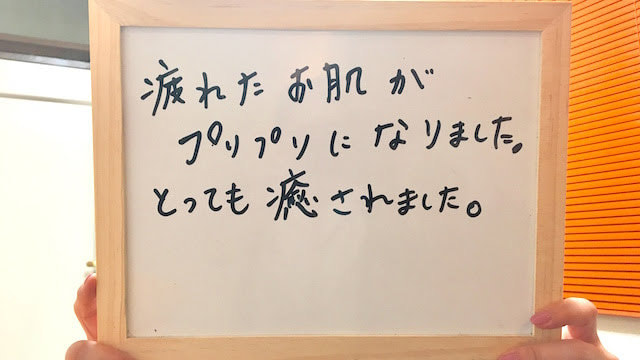 疲れたお肌が
プリプリになりました。
とっても癒されました。